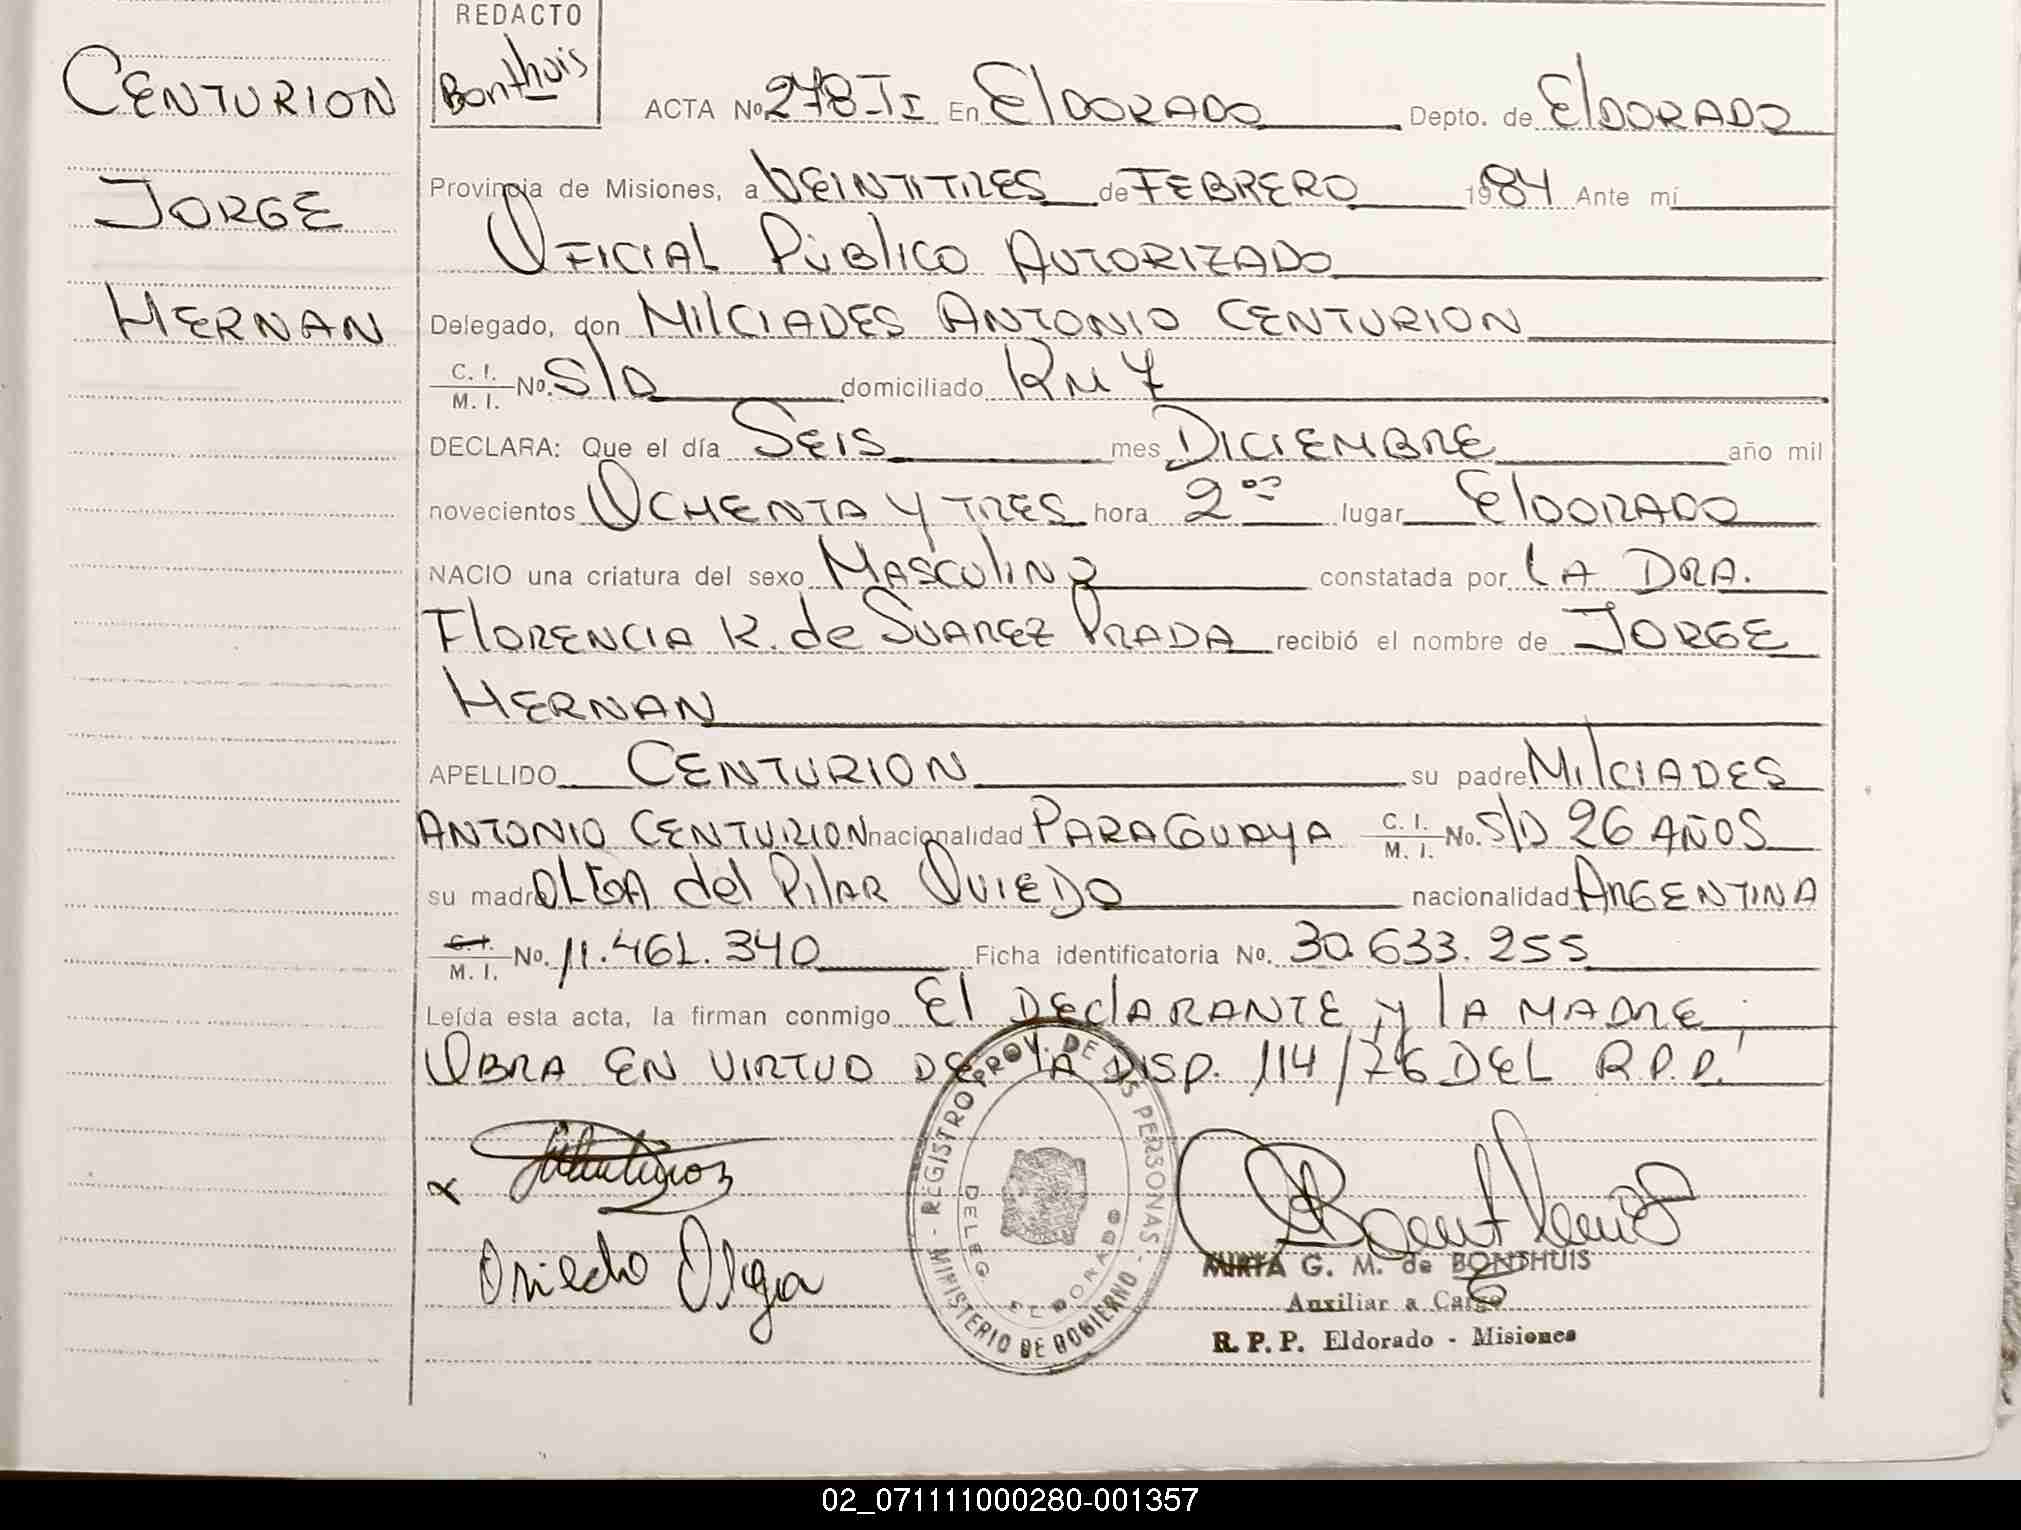 REDACTO
Bonthuis
CENTURION
JORGE
HERNAN
ACTA Nº 278-TI En ElDORADO Depto. de ElDORADO
Provincia de Misiones, a VEINTITRES de FEBRERO 1984 Ante mí
OFICIAL PÚBlICO AUTORIZADO
Delegado, don MIlCIADES ANTONIO CENTURION
C. I. / M. I. Nº. S/D domiciliado KM 7
DECLARA: Que el día SEIS mes DICIEMBRE año mil
novecientos OCHENTA Y TRES hora 2 00 lugar ElDORADO
NACIO una criatura del sexo MASCUlINO constatada por lA DRA.
FlORENCIA K. de SUAREZ PRADA recibió el nombre de JORGE
HERNAN
APELLIDO CENTURION su padre MIlCIADES
ANTONIO CENTURION nacionalidad PARAGUAYA C. I. / M. I. No. S/D 26 AÑOS
su madre OLGA del PIlAR OVIEDO nacionalidad ARGENTINA
C. I. / M. I. No. 11.461.340 Ficha identificatoria No. 30.633.255
Leída esta acta, la firman conmigo El DEClARANTE y lA MADRE;
OBRA EN VIRTUD DE lA DISP. 114/76 DEL R.P.P.
Oviedo Olga
REGISTRO PROV. DE LAS PERSONAS - MINISTERIO DE GOBIERNO -
DELEG. ELDORADO
MIRTA G. M. de BONTHUIS
Auxiliar a Cargo
R. P. P. Eldorado - Misiones
02_071111000280-001357